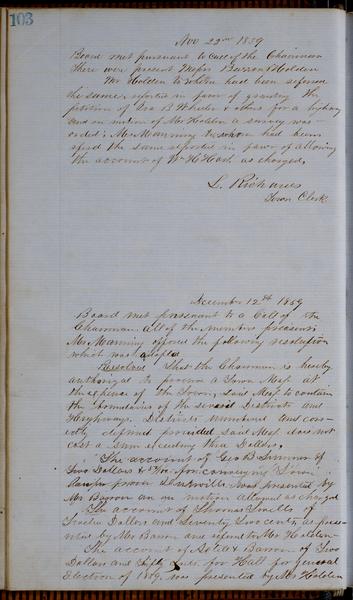 103
Nov 22nd 1859
Board met pursuant to Call of the Chairman
There were present Messrs Barron & Holden
Mr Holden to whom had been referred
the same, reported in favor of granting the
petition of Geo B Wheeler & others for a highway
and on motion of Mr Holden a survey was
ordered; Mr Manning to whom had been
referd the same reported in favor of allowing
the account of Wm H Hosk as charged,
L. Richards
Town Clerk
December 12th 1859
Board met pursuant to a Call of the
Chairman. All of the members present;
Mr Manning offered the following resolution
which was adopted
Resolved That the Chairman is hereby
authorized to procure a Town Map at
the expense of the Town, said Map to contain
the boundaries of the several Districts and
Highways, Districts numbered and
defined provided said Map does not
cost a sum exceeding three Dollars,
The account of Geo B Simmer of
Two Dollars for conveying Town
pauper from was presented by
Mr Barron an on motion allowed as charged
The account of Thomas of
Twelve Dollars and Seventy Two cents as prese-
nted by Mr Barron and referred to Mr Holden -
The account of & Barron of Two
Dollars and fifty cents for Hall for general
Election of 1859, was presented by Mr Holden